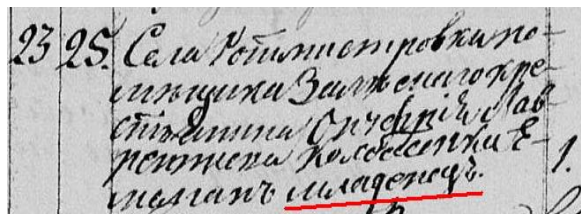 23 25. Села Ротмистровки по-
мѣщика Залѣскаго кре-
стьянина Онуфрія Лав-
рентіева Колесника Е-
мельянъ младенецъ. 1.